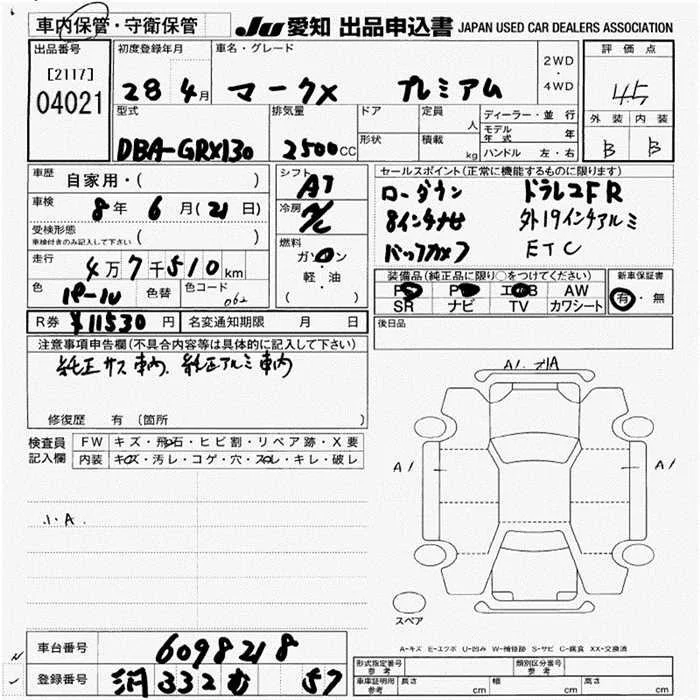 車内保管・守衛保管
JU 愛知 出品申込書 JAPAN USED CAR DEALERS ASSOCIATION
出品番号
[2117]
04021
初度登録年月
28 4月
車名・グレード
マークX プレミアム
2WD
・
4WD
評価点
4.5
外装 内装
B B
型式
DBA-GRX130
排気量
2500CC
ドア
形状
定員
人
積載
kg
ディーラー・並行
モデル年式 年
ハンドル 左・右
車歴
自家用・( )
車検
8年 6月(21日)
受検形態
車検付きのみ記入して下さい ( )
走行
4万7千510km
色
パール
色替
色コード
062
シフト
AT
冷房
A/C
燃料
ガソリン
・
軽・油
( )
セールスポイント(正常に機能するものに限ります)
ローダウン ドラレコFR
8インチナビ 外19インチアルミ
バックカメラ ETC
装備品(純正品に限り○をつけてください)
PS PW エアB AW
SR ナビ TV カワシート
新車保証書
有・無
後日品
R券 ¥11530円
名変通知期限 月 日
注意事項申告欄(不具合内容等は具体的に記入して下さい)
純正サス車内、純正アルミ車内
修復歴 有(箇所 )
検査員
記入欄
FW キズ・飛石・ヒビ割・リペア跡・X要
内装 キズ・汚レ・コゲ・穴・スレ・キレ・破レ
A1
A1
A1
スペア
A-キズ E-エクボ U-凹み W-補修跡 S-サビ C-腐食 XX-交換済
車台番号
6098218
登録番号
332 む 57
形式指定番号
参考
類別区分番号
参考
車庫証明用
参考
長さ cm
幅 cm
高さ cm